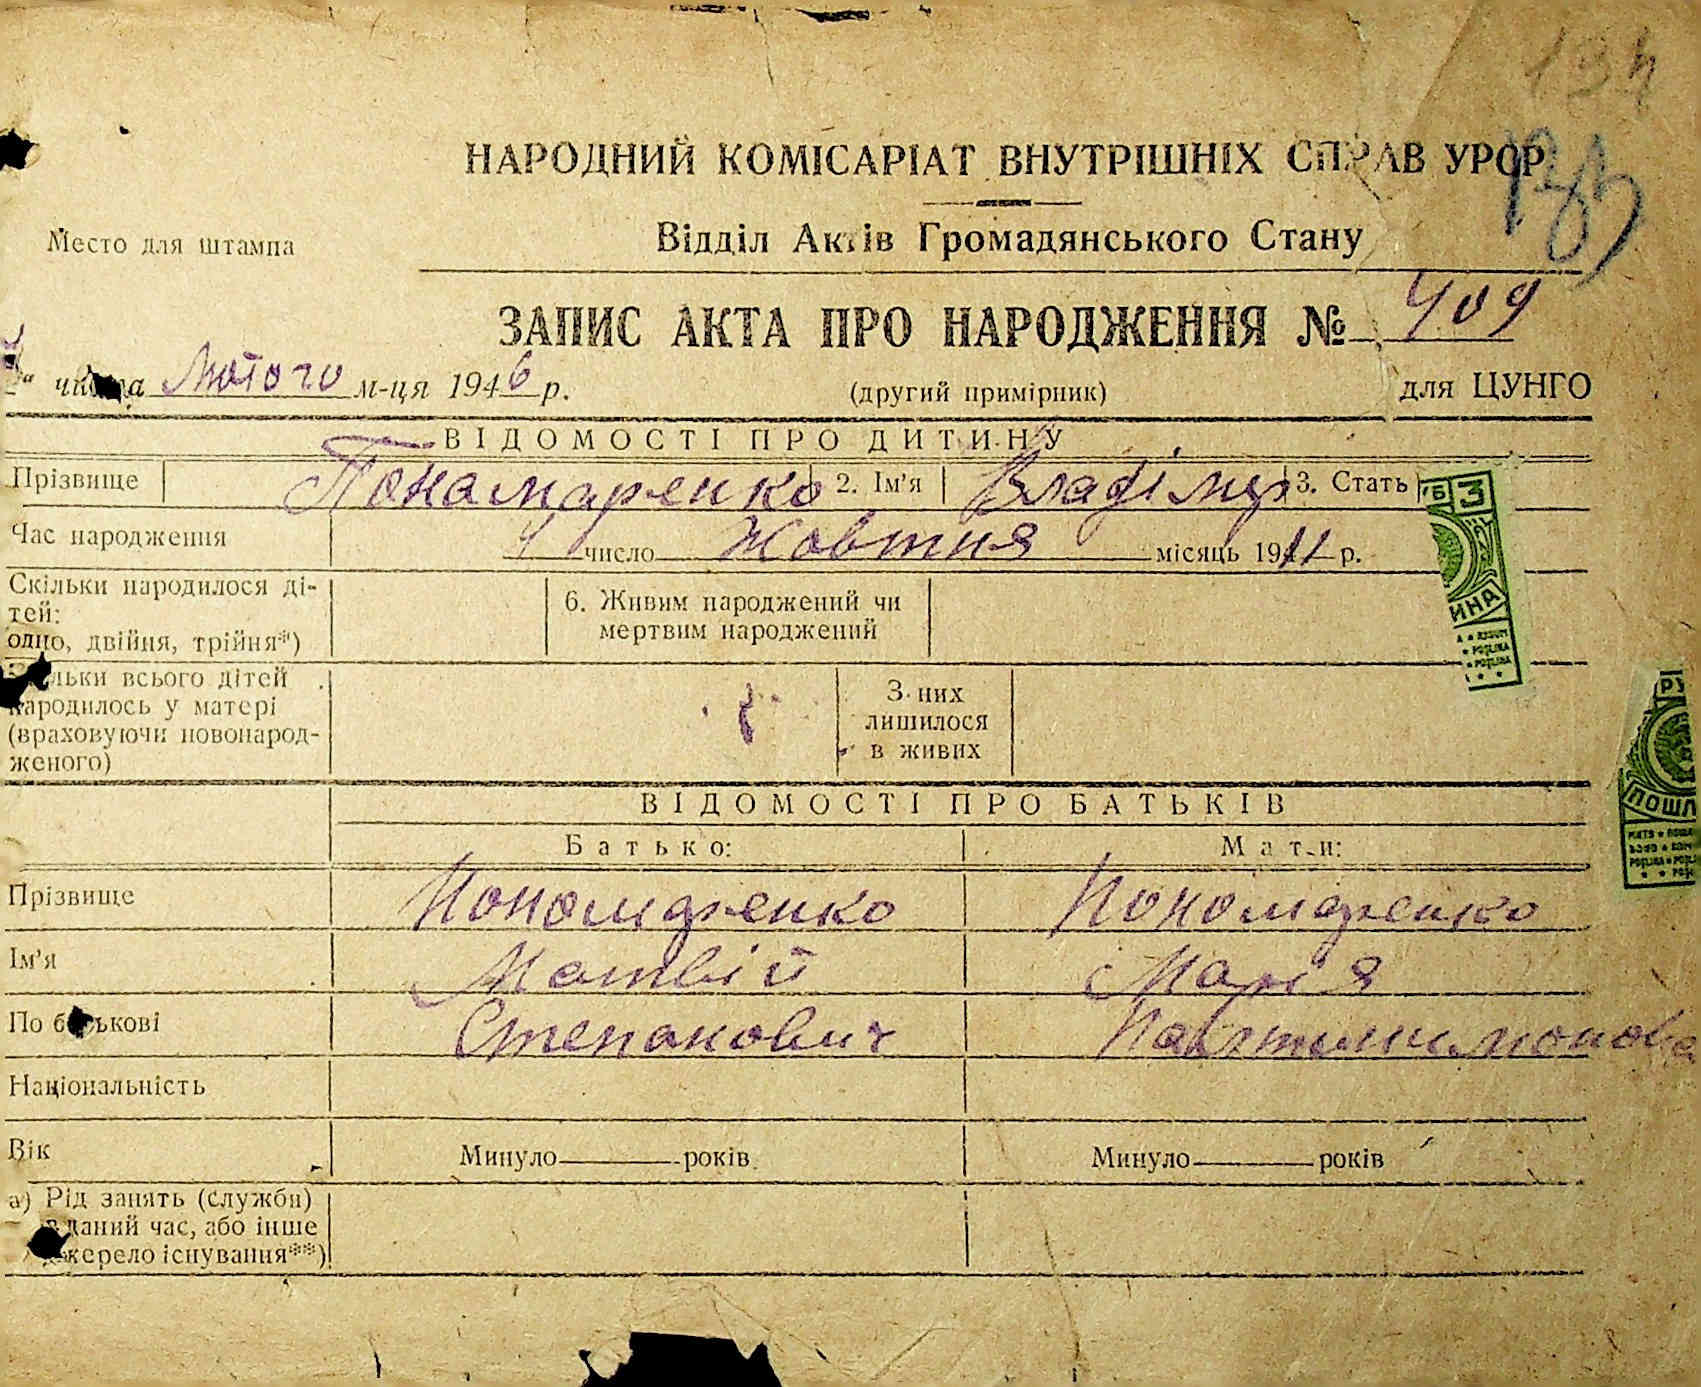 134
НАРОДНИЙ КОМІСАРІАТ ВНУТРІШНІХ СПРАВ УРСР
Место для штампа
Відділ Актів Громадянського Стану
ЗАПИС АКТА ПРО НАРОДЖЕННЯ № 409
" числа Лютого м-ця 1946 р. (другий примірник) для ЦУНГО
ВІДОМОСТІ ПРО ДИТИНУ
Прізвище Понамаренко 2. Ім'я Владімир 3. Стать
Час народження 4 число Жовтня місяць 1911 р.
Скільки народилося ді-
тей:
одно, двійня, трійня*)
6. Живим народжений чи
мертвим народжений
Скільки всього дітей
народилось у матері
(враховуючи новонарод-
женого)
З них
лишилося
в живих
ВІДОМОСТІ ПРО БАТЬКІВ
Батько: Мати:
Прізвище Пономаренко Пономаренко
Ім'я Матвій Марія
По батькові Степанович
Національність
Вік Минуло років Минуло років
а) Рід занять (служби)
в даний час, або інше
джерело існування**)
3